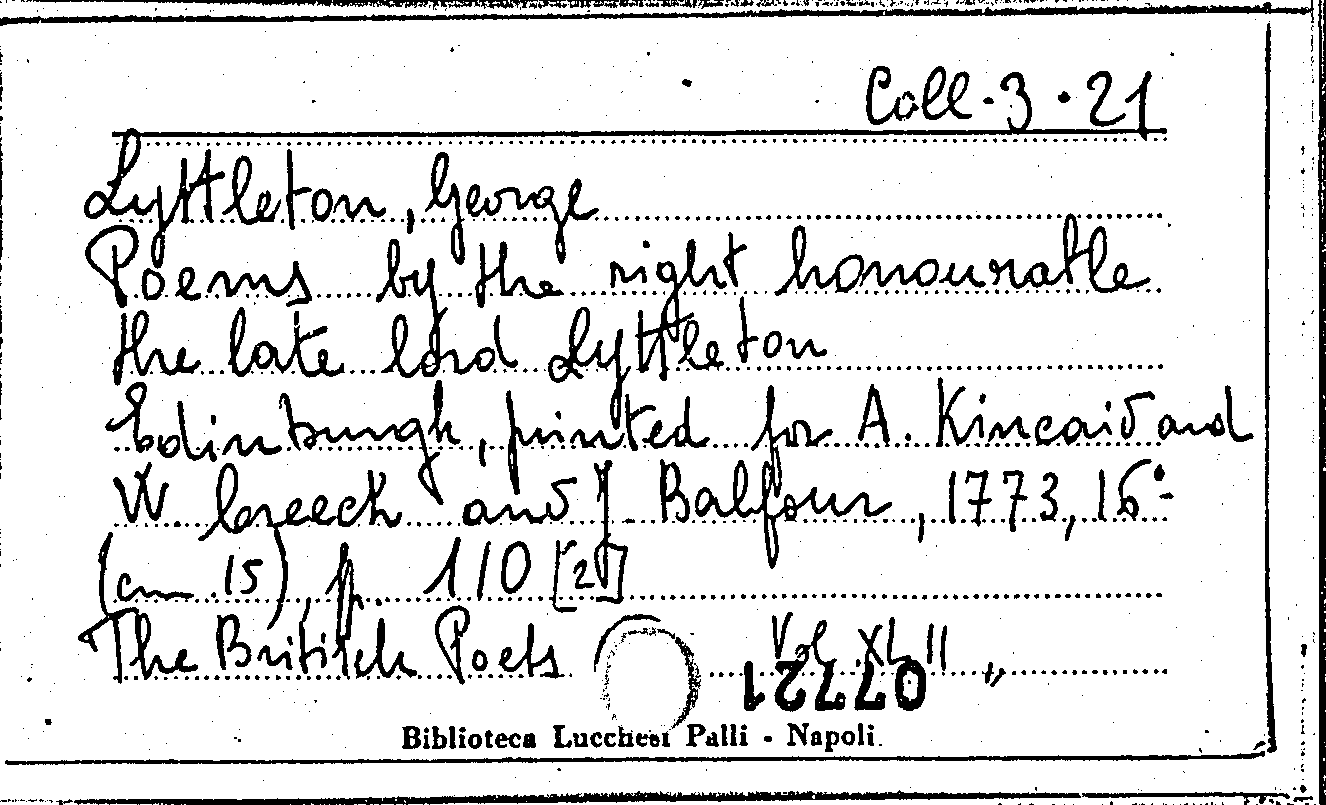 Coll. 3. 21
Lyttleton, George
Poems by the right honourable
the late lord Lyttleton
Edinburgh, printed for A. Kincaid and
W. Creech and J. Balfour, 1773, 16°.
(cm. 15), p. 110 [2]
The British Poets Vol. XLII „
07721
Biblioteca Lucchesi Palli - Napoli